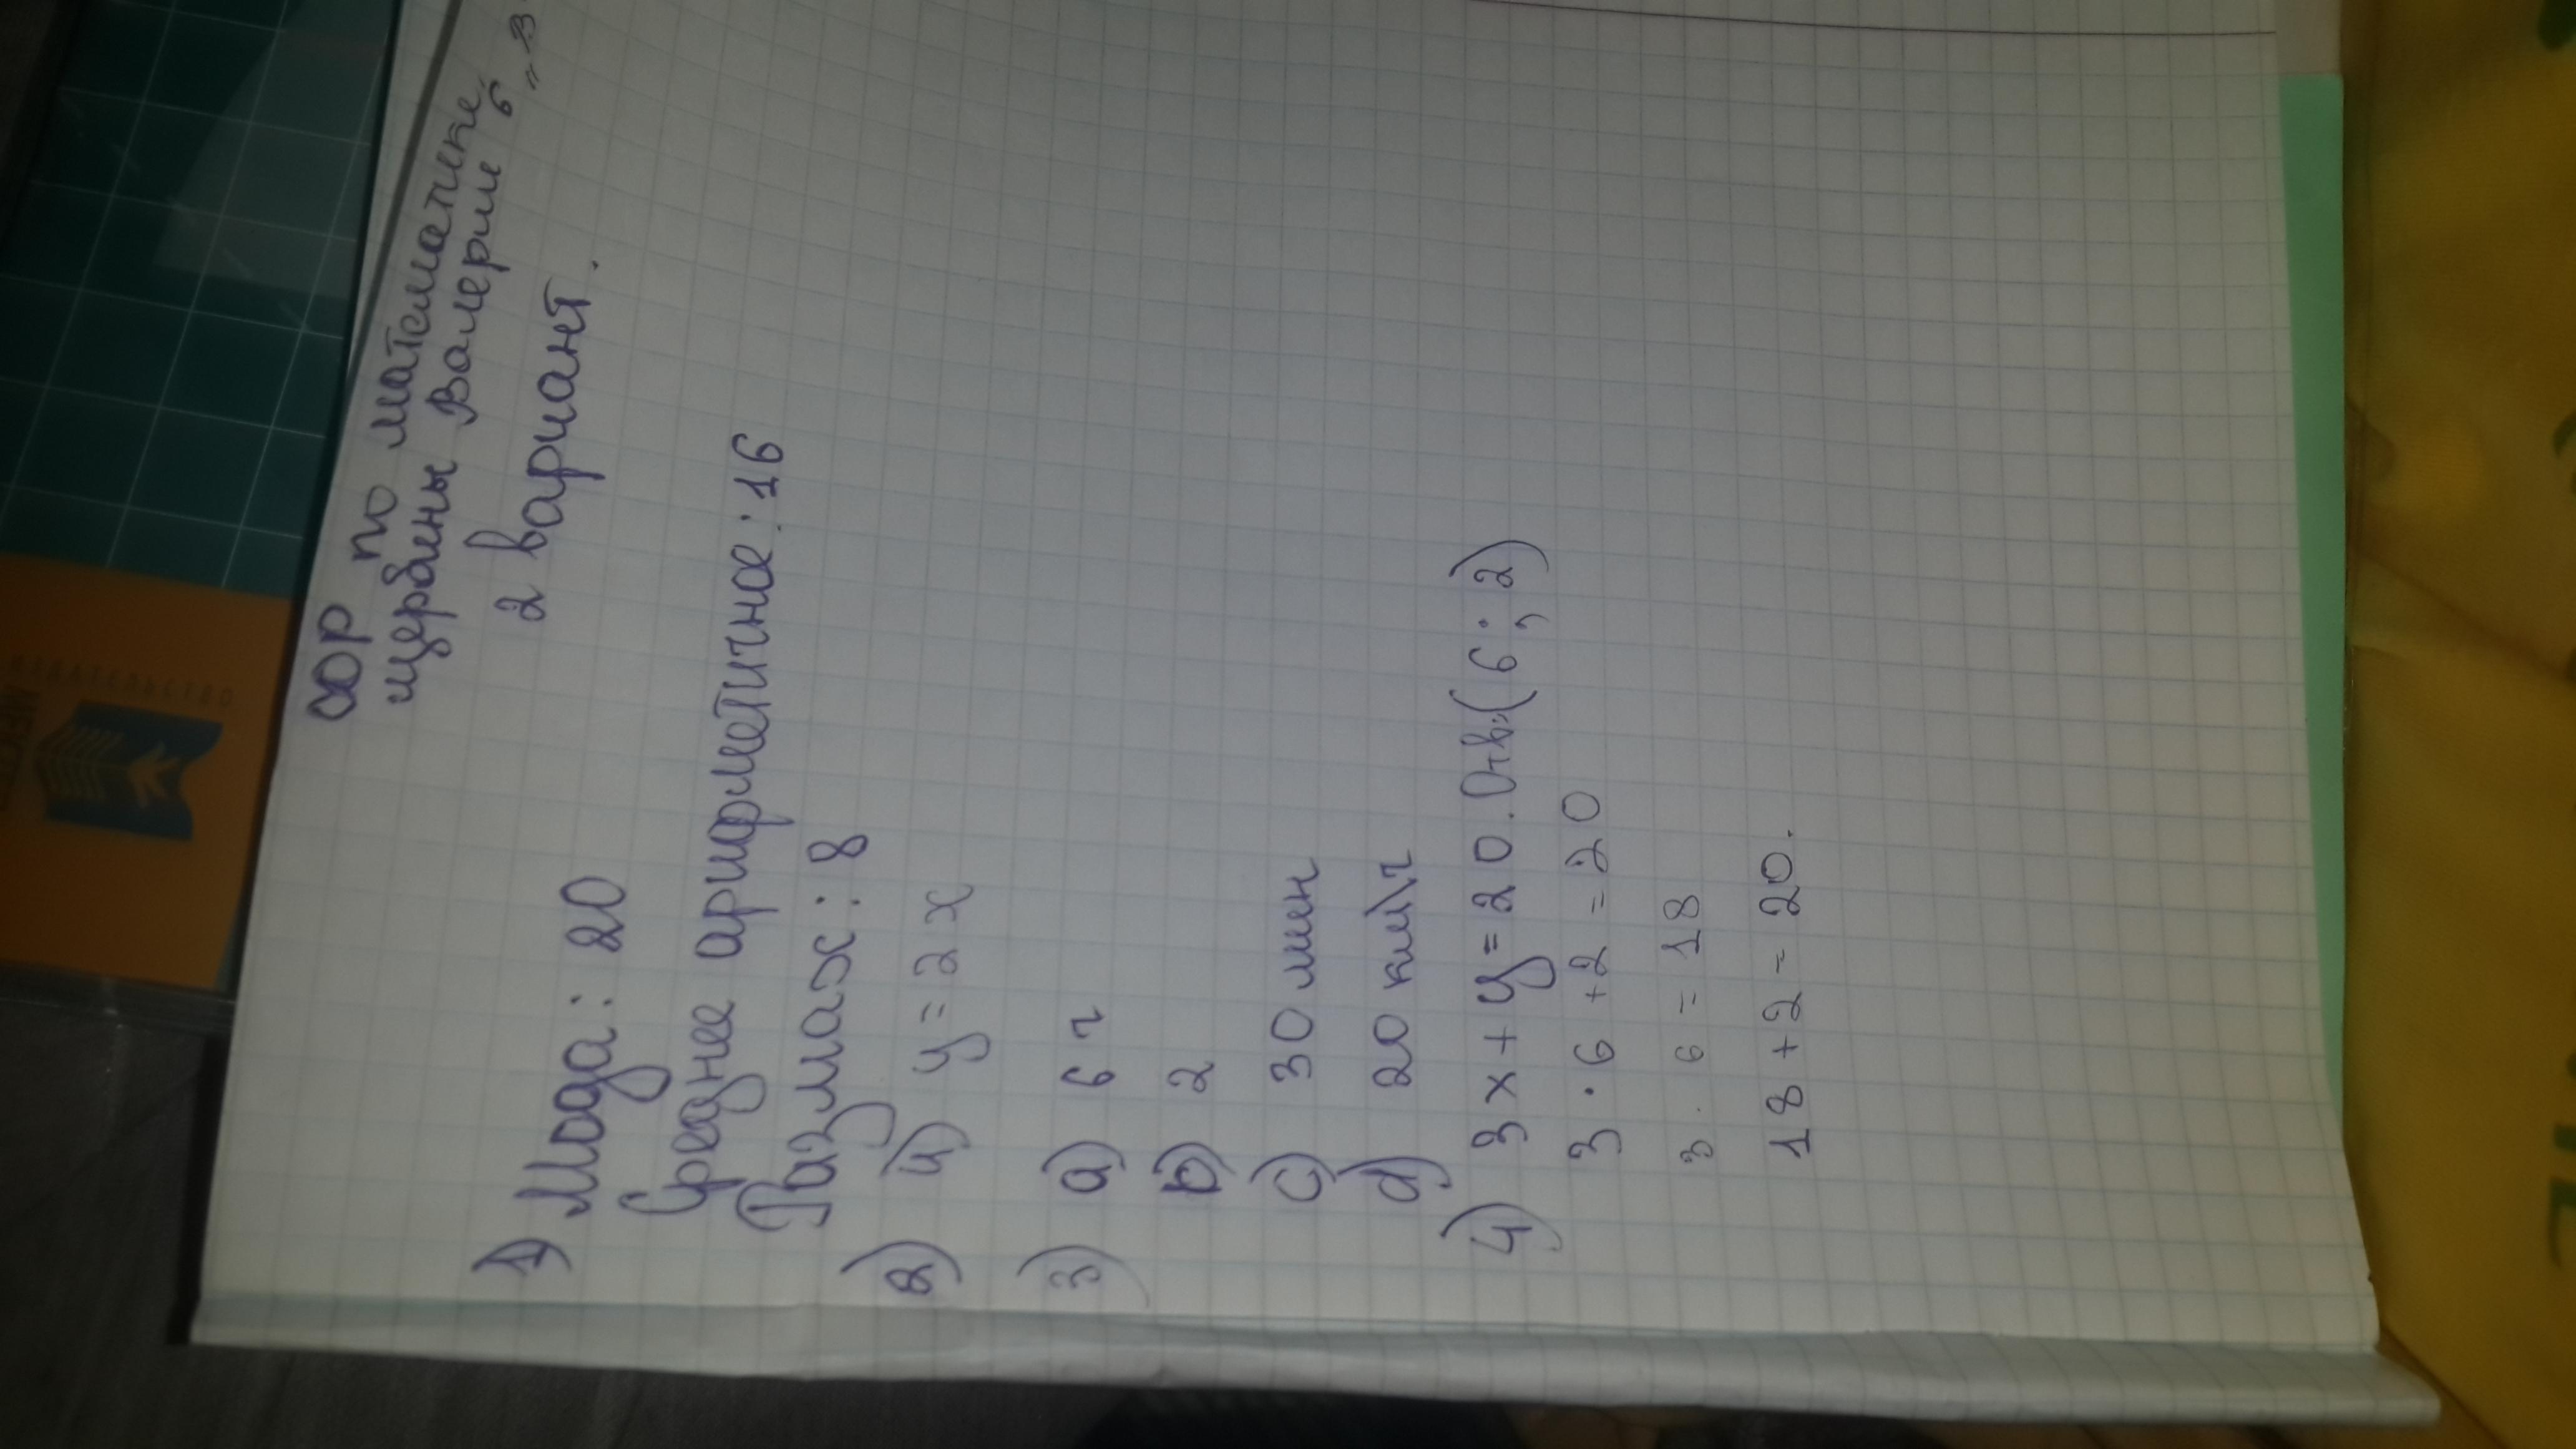 СОР по математике
Щербины Валерии 6 „В
2 вариант.
1) Мода: 20
Среднее арифметичное: 16
Размах: 8
2) 4) y = 2x
3) a) 6 ч
b) 2
c) 30 мин
d) 20 км\ч
4) 3x + y = 20. Отв:(6 ; 2)
3 · 6 + 2 = 20
3 . 6 = 18
18 + 2 = 20.